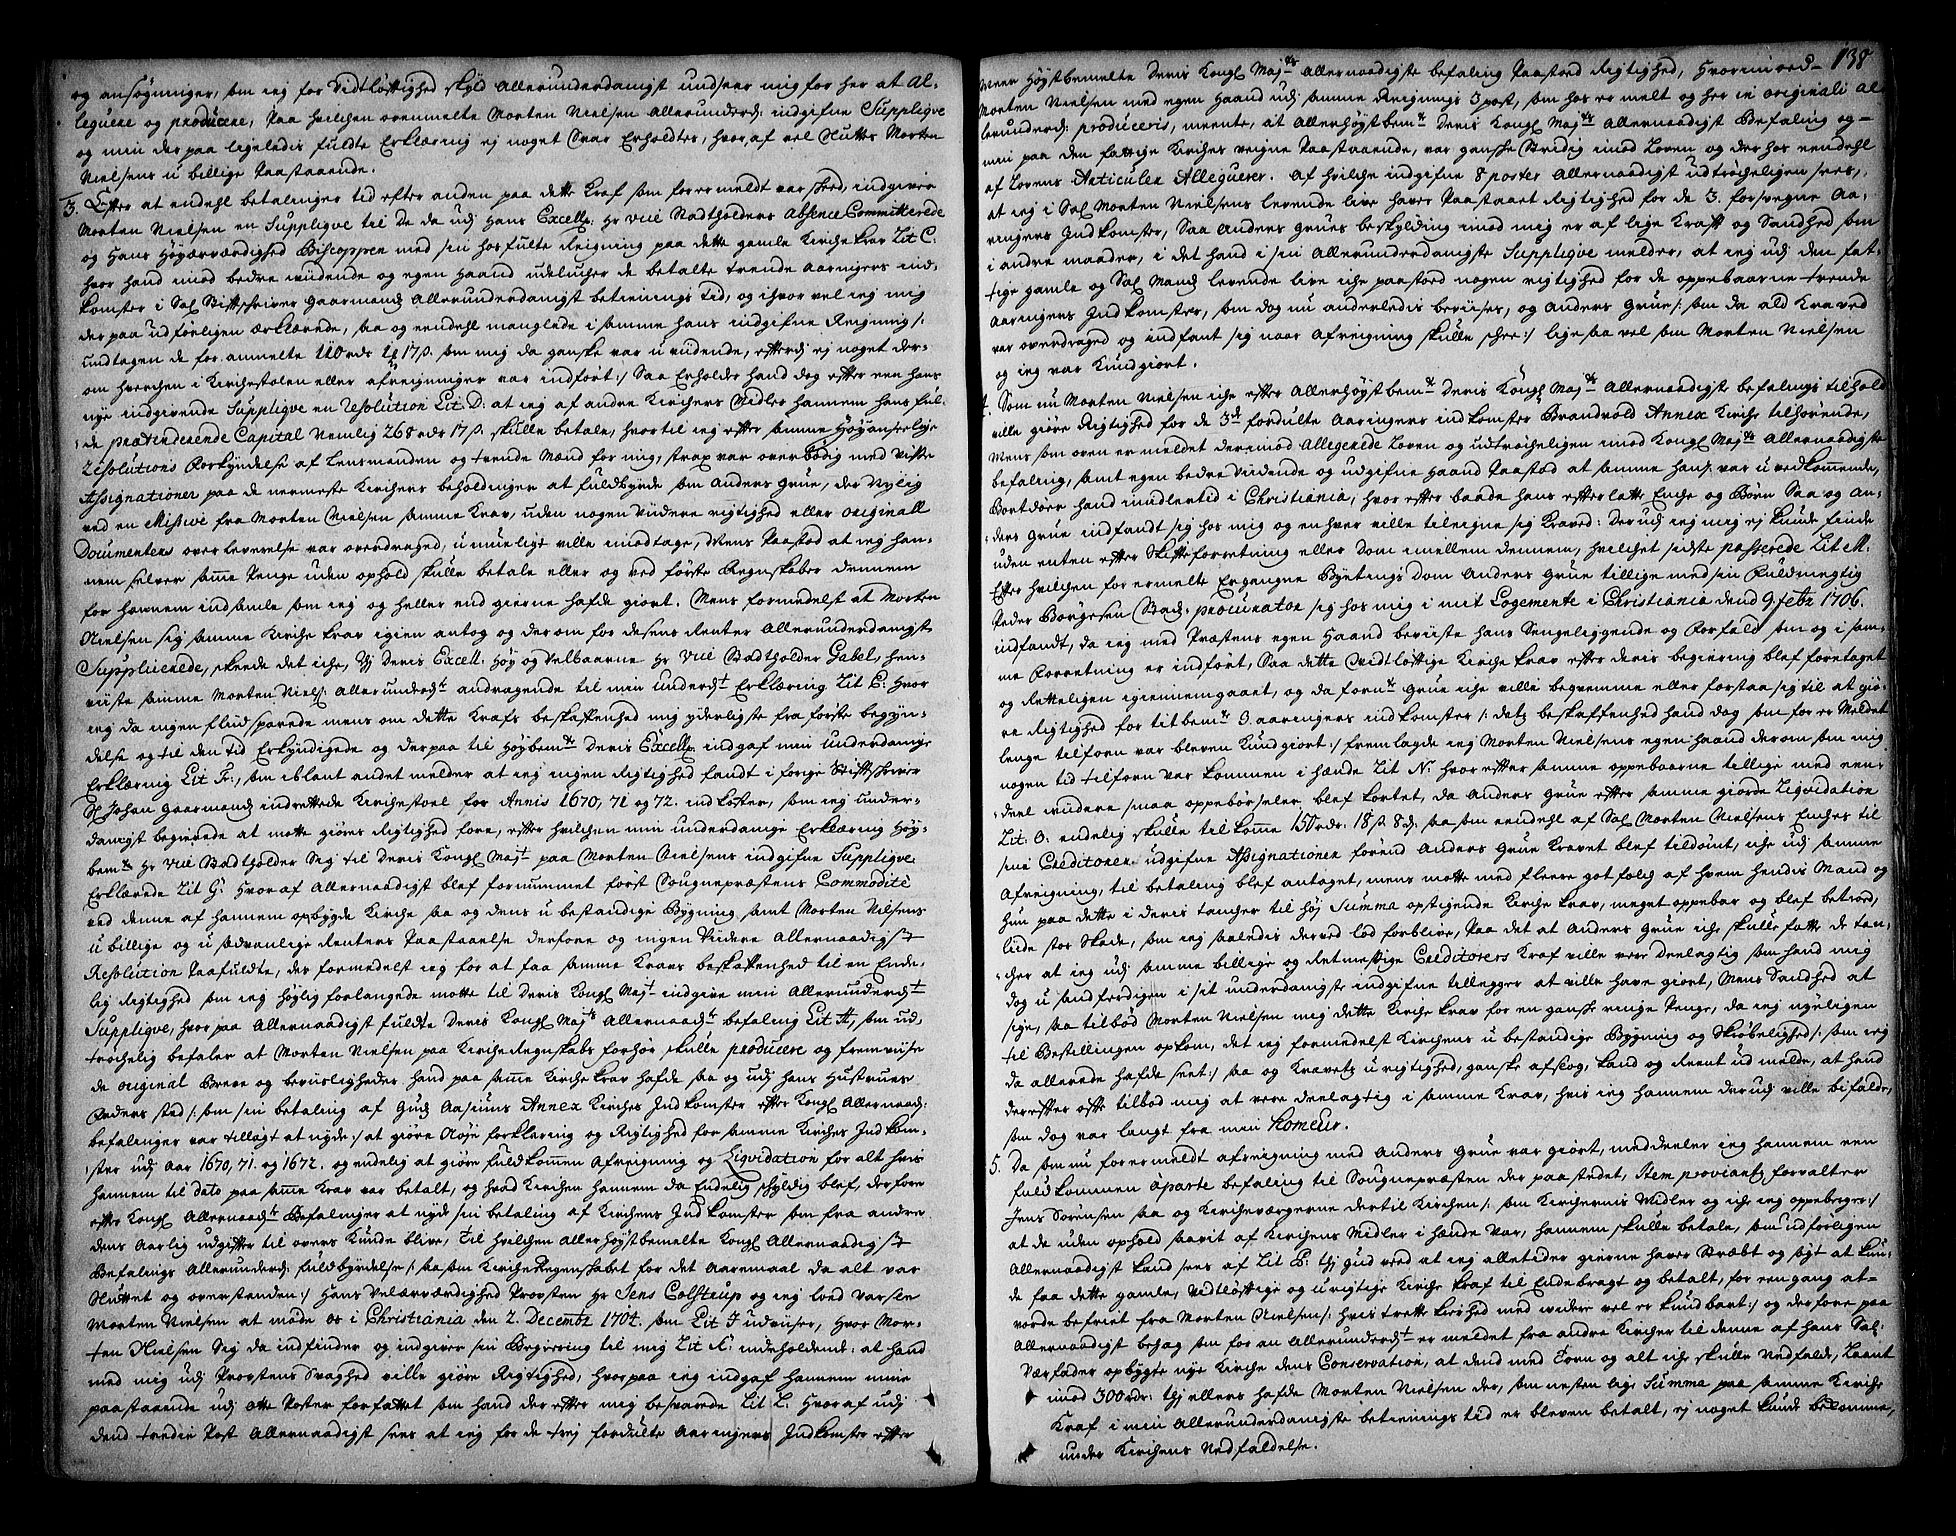 og ansøgninger, som iej for Vidtløftighed skyld Allerunderdanigst undseer mig for her at Al-
leguere og producere, Paa hvilchen ovenmelte Morten Nielsen Allerunderd: indgifne Supplique
og min der paa ligeledis fuldte Erklæring ej noget Svar Erholdtes, hvor af vel flutter Morten
Nielsens u billige Paastaaende.
3. Efter at endehl betalinger tid efter anden paa dette Kraf som for er meldt var skeed, indgiver
Morten Nielsen en Supplique til De da udj Hans Excell: Hr Vice Stadtholders Absence Committerede
og Hans Høyærværdighed Biscoppen med sin hosfulte Reigning paa dette gamle Kirche krav Lit C:
hvor hand imod bedre vidende og egen Haand udelucher de betalte trende Aaringers ind-
komster i Sal Stiftschriver Gaarmands Allerunderdanigst betienings tid, og ihvor vel iej mig
der paa udførligen erklærede, saa og eendehl manglede i samme hans indgifne Reigning /:
undtagen de for anmelte 110 rdr 17 s. som mig da ganske var u vidende, efterdj ej noget der-
om hverchen i Kirchestolen eller afreigninger var indført :/ Saa Erholder hand dog efter een hans
nye indgivende Supplique en Resolution Lit D: at iej af andre Kirchers Midler hannem hans ful-
de prætenderende Capital Nemlig 268 rdr 17 s. skulle betale, hvortil iej efter samme Høyanseelige
Resolutions Forkyndelse af Lensmanden og trende Mænd for mig, strax var overbødig med Visse
Assignationer paa de nermeste Kirchers beholdninger at fuldbyrde som Anders Grüe, der Nylig
ved en Missive fra Morten Nielsen samme Krav, uden nogen Videre rigtighed eller originall
Documenters overleverelse var overdraged, umueligt ville imodtage, Mens Paastod at iej han-
nem selver samme Penge uden ophold skulle betale eller og ved første Regnskaber dennem
for hannem indsamle som iej og heller end gierne hafde giort. Mens formedelst at Morten
Nielsen sig samme Kirche krav igien antog og derom for desens Renter Allerunderdanigst
Supplicerede, skeede det iche, thj Deris Excell: Høy og Velbaarne Hr Vice Stadtholder Gabel, hen-
viiste samme Morten Niels: Allerunderdt andragende til min underdt Erklæring Lit E: hvor
iej da ingen fliid sparede mens om dette Krafs beskaffenhed mig yderligste fra første begyn-
delse og til den tid Erkyndigede og derpaa til Høybemte Deris Excell: indgaf min underdanige
Erklæring Lit F:, som iblant andet melder at iej ingen Rigtighed fandt i forige Stiftschriver
Sl Johan Gaarmands indrettede Kirchestoel for Annis 1670, 71 og 72. indkomster, som iej under-
danigst begierede at motte giøres Rigtighed fore, efter hvilchen min underdanige Erklæring Høy-
bemte Hr Vice Stadtholder Sig til Deris Kongl Majt paa Morten Nielsens indgifne Supplique
Erklærede Lit G: hvor af Allernaadigst blef fornummet først Sougnepræstens Commodité
ved denne af hannem opbygde Kirche saa og dens u bestandige Bygning, samt Morten Nielsens
u billige og u sædvanlige Renters Paastaaelse derfore og ingen Videre Allernaadigst
Resolution Paafuldte, der formedelst iej for at faa samme Krafs beskaffenhed til en Ende-
lig Rigtighed som iej høylig forlangede motte til Deris Kongl Majt indgive min Allerunderdt
Supplique, hvor paa Allernaadigst fuldte Deris Kongl Majts Allernaadte befaling Lit H, som ud-
trøchelig befaler at Morten Nielsen paa Kirche Regnskabs forhør skulle producere og fremviise
de original Breve og beviisligheder hand paa samme Kirche krav hafde saa og udj hans Hustrues
Faders sted /: som sin betaling af Guds Aasiums Annex Kirches Indkomster efter Kongl Allernaad:
befalinger var tillagt at nyde :/ at giøre Nøje forklaring og Rigtighed for samme Kirches Indkom-
ster udj Aar 1670, 71. og 1672. og endelig at giøre fuldkommen Afreigning og Liqvidation for alt hvis
hannem til dato paa samme Krav var betalt, og hvad Kirchen hannem da Endelig schyldig blef, derfore
efter Kongl Allernaadte Befalinger at nyde sin betaling af Kirchens Indkomster som fra andre
dens Aarlig udgifter til overs Kunde blive, Til hvilchen allerhøystbemelte Kongl Allernaadigst
Befalings Allerunderd: fuldbyrdelse /: saasom KircheRegenskabet for det Aaremaal da alt var
sluttet og overstanden :/ Hans Velærværdighed Provsten Hr Jens Colstrup og iej loed Varsle
Morten Nielsen at møde os i Christiania den 2. Decembr 1704. som Lit I udviser, hvor Mor-
ten Nielsen Sig da indfinder og indgiver sin Begiering til mig Lit K: indeholdende: at hand
med mig udj Provstens Svaghed ville giøre Rigtighed, hvor paa iej indgaf hannem mine
paastaaende udj otte Poster forfattet som hand der efter mig besvarede Lit L. hvor af udj
dend tredie Post Allernaadigst sees at iej for de trej fordulte Aaringers Indkomster efter
138
meer Høystbemelte Deris Kongl Majts Allernaadigste befaling Paastoed Rigtighed, hvorimod
Morten Nielsen med egen Haand udj samme Reignings 3 post, som hos er melt og her in originali al-
lerunderd: produceris, meente, at Allerhøystbemte Deris Kongl Majts Allernaadigst Befaling og
min paa den fattige Kirches vegne Paastaaende, var ganske stridig imod Loven og der hos eendehl
af Lovens Articuler Allequerer. Af hvilche indgifne 8 poster Allernaadigst udtrøcheligen sees,
at iej i Sal Morten Nielsens levende live haver Paastaaet Rigtighed for de 3. forsvegne Aa-
ringers Indkomster, Saa Anders Grües beskylding imod mig er af lige Kraft og Sandhed som
i andre maader, i det hand i sin Allerunderdanigste Supplique melder, at iej udj den fat-
tige gamle og Sal Mands levende live iche paastoed nogen rigtighed for de oppebaarne trende
Aaringers Indkomster, som dog nu anderledis beviises, og Anders Grüe /: som da ald Kraved
var overdraged og indfant sig naar Afreigning skulle schee :/ lige saa vel som Morten Nielsen
og iej var Kundgiort.
4. Som nu Morten Nielsen iche efter Allerhøystbemte Deris Kongl Majts Allernaadigst befalings tilhold
ville giøre Rigtighed for de 3de fordulte Aaringers indkomster Brandvold Annex Kirche tilhørende,
Mens som oven er meldet derimod Allegerede Loven og udtrøcheligen imod Kongl Majts Allernaadigste
befaling, samt egen bedre Vidende og udgifne Haand Paastod at samme hans var u vedkommende,
Bortdøer hand imidlertid i Christiania, hvor efter baade hans efterlatte Enche og Børn Saa og An-
ders Grüe indfandt sig hos mig og enhver ville tileigne sig Kraved: Derudj iej mig ej kunde finde
uden enten efter Skifteforretning eller Dom imellem dennem, hvilchet sidste passerede Lit M:
Efter hvilchen for ermelte Ergangne Bytings Dom Anders Grüe tillige med sin Fuldmegtig
Peder Børgesen Stads procurator sig hos mig i mit Logemente i Christiania dend 9 Febr 1706.
indfandt, da iej med Præstens egen Haand beviiste hans Sengeliggende og Forfald som og i sam-
me Forretning er indført, Saa dette Vidtløftige Kirche krav efter deris begiering blef foretaget
og Retteligen igiennemgaaet, og da fornte Grüe iche ville beqvemme eller forstaa sig til at giø-
re Rigtighed for titbemte 3. aaringers indkomster /: dets beskaffenhed hand dog som for er Meldet
lenge tilforn var bleven Kundgiort :/ fremlagde iej Morten Nielsens egen haand derom som mig
nogen tid tilforn var kommen i hænde Lit N: hvor efter samme oppebaarne tillige med een-
deel videre smaa oppebørseler blef kortet, da Anders Grüe efter samme giorde Liqvidation
Lit: O. endelig skulle tilkomme 150 rdr. 18 s. 8 d. saa som eendehl af Sal Morten Nielsens Enches til
sine Creditorer udgifne Assignationer førend Anders Grüe Kravet blef tildømt, iche udj samme
Afreigning til betaling blef antaget, mens motte med fleere got folch af hvem hendis Mand og
hun paa dette i deris tancher til høj Summa opstigende Kirche krav, meget oppebar og blef betroed,
liide stor Skade, som iej saaledis derved lod forblive, Paa det at Anders Grüe iche skulle fatte de tan-
cher at iej udj samme billige og Retmessige Creditorers Kraf ville vere deelagtig som hand mig
dog u sandferdigen i sit underdanigste indgifne tillegger at ville have giort, Mens Sandhed at
sige, saa tilbød Morten Nielsen mig dette Kirche krav for en ganske ringe Penge, da iej nyeligen
til Bestillingen opkom, det iej formedelst Kirchens u bestandige Bygning og Skrøbelighed /: som iej
da allerede hafde seet :/ saa og Kravets u rigtighed, ganske afslog, kand og Reent ud melde, at hand
derefter ofte tilbød mig at vere deelagtig i samme Krav, hvis iej hannem derudj ville bifalde,
som dog var langt fra min Homeur.
5. Da som nu for ermeldt afreigning med Anders Grüe var giort, meddeeler iej hannem een
fuldkommen aparte befaling til Sougnepræsten der paa stedet, Item proviantz forvalter
Jens Sørensen saa og Kircheværgerne dertil Kirchen /: som Kirchernis Midler og iche iej oppeberger :/
at de uden ophold saavit af Kirchens Midler i hænde var, hannem skulle betale, som udførligen
Allernaadigst kand sees af Lit P: thj Gud veed at iej alletider gierne haver Stræbt og søgt at kun-
de faa dette gamle, Vidtløftige og u rigtige Kirche kraf til Ende bragt og betalt, for eengang at
vorde befriet fra Morten Nielsen /: hvis trette kierhed med videre vel er kundbart :/ og derfore paa
Allernaadigst behag som for an Allerunderdt er meldet fra andre Kircher til denne af hans Sal:
Værfader opbygte nye Kirche dens Conservation, at dend med Torn og alt iche skulle Nedfalde, Laant
imod 300 rdr: thj ellers hafde Morten Nielsen der, som nesten lige Summa paa samme Kirche
Kraf i min Allerunderdanigste betienings tid er bleven betalt, ej noget kunde bekomme,
under Kirchens Nedfaldelse.